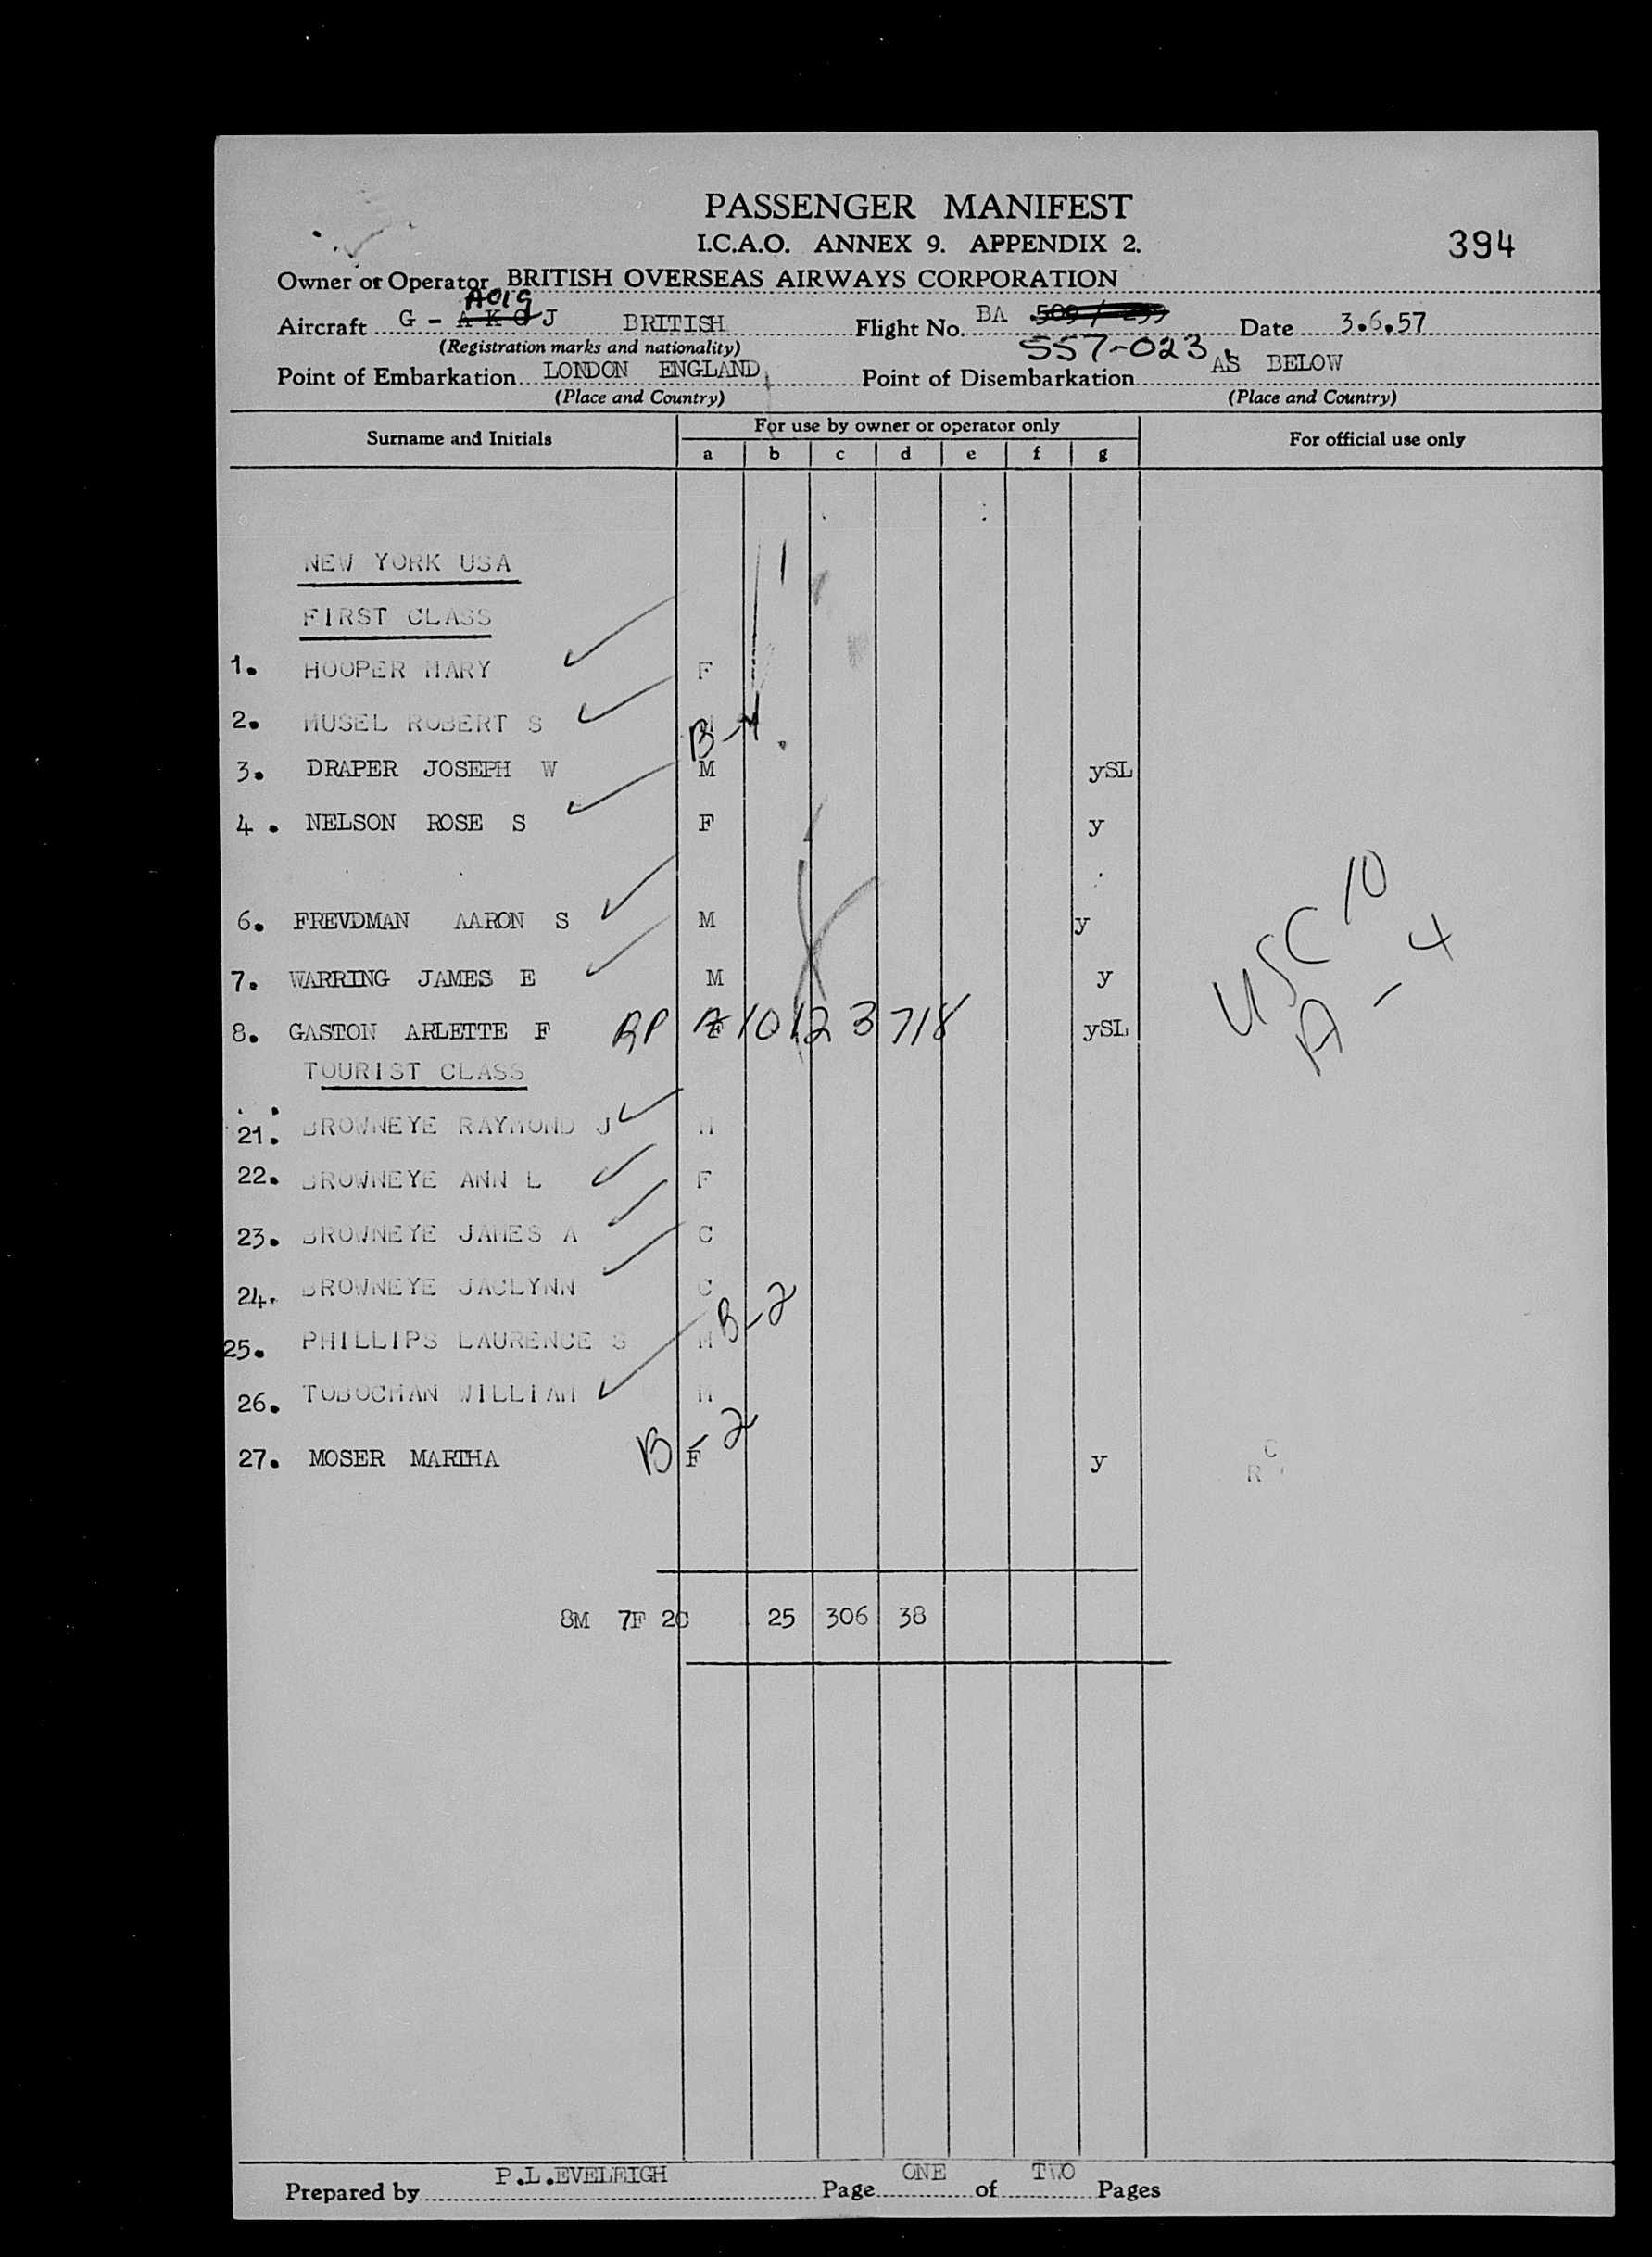 PASSENGER MANIFEST
I.C.A.O. ANNEX 9. APPENDIX 2.
394
Owner or Operator BRITISH OVERSEAS AIRWAYS CORPORATION
Aircraft G - J BRITISH Flight No. BA 557-023 Date 3.6.57
(Registration marks and nationality)
Point of Embarkation LONDON ENGLAND Point of Disembarkation AS BELOW
(Place and Country) (Place and Country)
Surname and Initials For use by owner or operator only For official use only
a b c d e f g
NEW YORK USA
FIRST CLASS
1. HOOPER MARY F
2. MUSEL ROBERT S
3. DRAPER JOSEPH W M ySL
4. NELSON ROSE S F y
6. FREVDMAN AARON S M y
7. WARRING JAMES E M y
8. GASTON ARLETTE F F ySL
USC 10
A - 4
TOURIST CLASS
21. BROWNEYE RAYMOND J M
22. BROWNEYE ANN L F
23. BROWNEYE JAMES A C
24. BROWNEYE JACLYNN C
25. PHILLIPS LAURENCE S M B-2
26. TOBOCMAN WILLIAM M
27. MOSER MARTHA B-2 F y
8M 7F 2C 25 306 38
Prepared by P.L.EVELEIGH Page ONE of TWO Pages